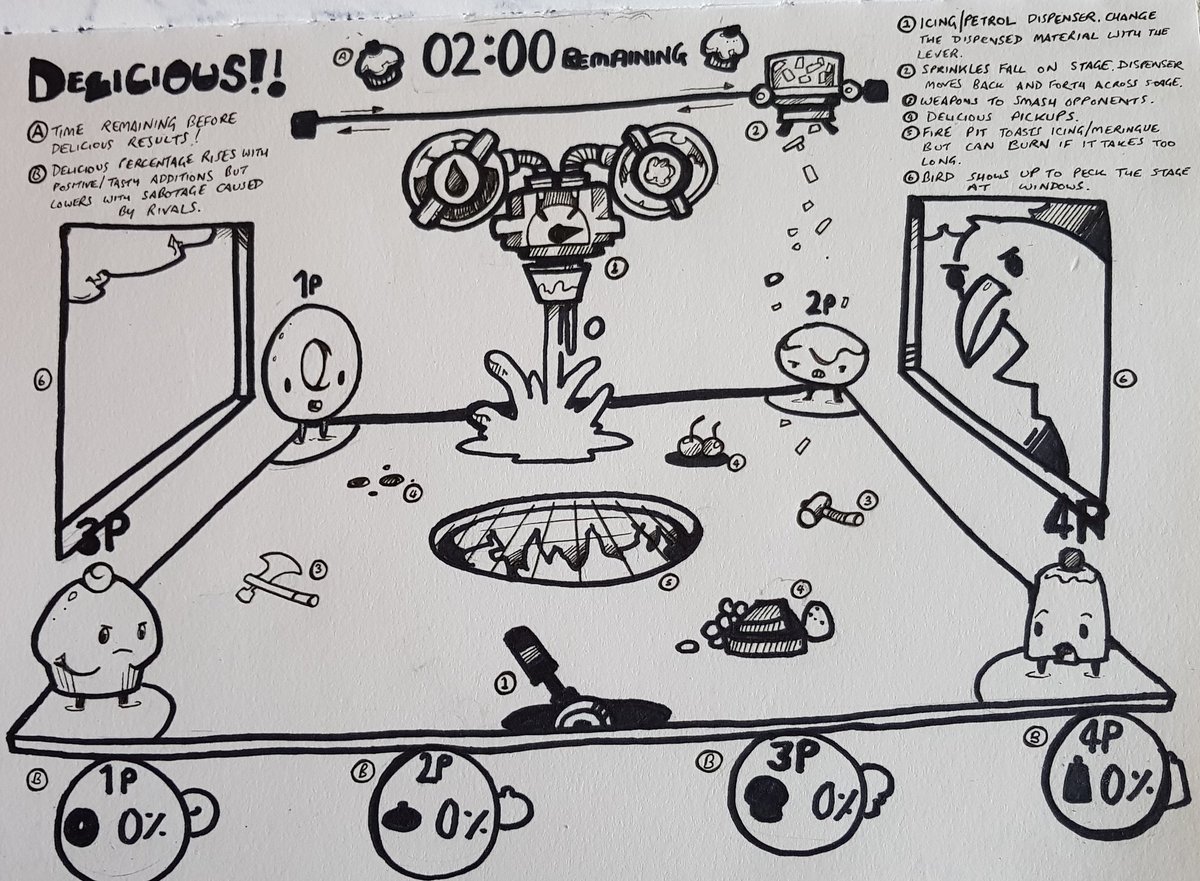 DELICIOUS!!
A TIME REMAINING BEFORE
DELICIOUS RESULTS!
B DELICIOUS PERCENTAGE RISES WITH
POSITIVE/TASTY ADDITIONS BUT
LOWERS WITH SABOTAGE CAUSED
BY RIVALS.
A 02:00 REMAINING
1 ICING/PETROL DISPENSER. CHANGE
THE DISPENSED MATERIAL WITH THE
LEVER.
2 SPRINKLES FALL ON STAGE, DISPENSER
MOVES BACK AND FORTH ACROSS STAGE.
3 WEAPONS TO SMASH OPPONENTS.
4 DELICIOUS PICKUPS.
5 FIRE PIT TOASTS ICING/MERINGUE
BUT CAN BURN IF IT TAKES TOO
LONG.
6 BIRD SHOWS UP TO PECK THE STAGE
AT WINDOWS.
2
1
1P
2P
6
6
4
4
3
3P
4P
3
5
4
1
B 1P
0%
B 2P
0%
B 3P
0%
B 4P
0%